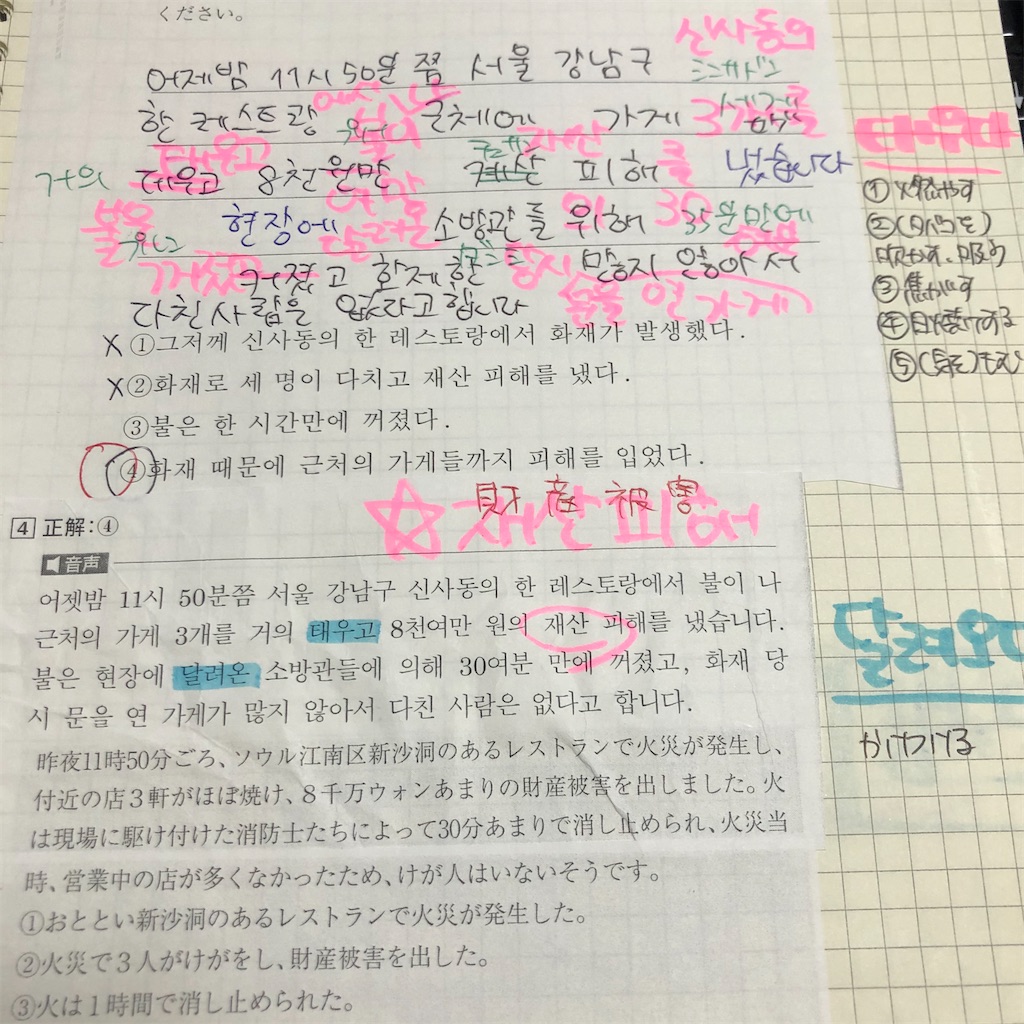 ください。
신사동의
어제밤 11시 50분 쯤 서울 강남구
한 레스트랑 에서 불이 근체에 가게 3개를
태우고
거의 태우고 8천 원만 재산 피해를 냈습니다
불은 현장에 달려온 소방관들 위해 35분만에
꺼졌고
커졌고 화제 많지 않아서
문을 연 가게
다친 사람은 없다고 합니다
X ①그저께 신사동의 한 레스토랑에서 화재가 발생했다.
X ②화재로 세 명이 다치고 재산 피해를 냈다.
③불은 한 시간만에 꺼졌다.
④화재 때문에 근처의 가게들까지 피해를 입었다.
財産被害
☆재산 피해
4 正解:④
音声
어젯밤 11시 50분쯤 서울 강남구 신사동의 한 레스토랑에서 불이 나
근처의 가게 3개를 거의 태우고 8천여만 원의 재산 피해를 냈습니다.
불은 현장에 달려온 소방관들에 의해 30여분 만에 꺼졌고, 화재 당
시 문을 연 가게가 많지 않아서 다친 사람은 없다고 합니다.
昨夜11時50分ごろ、ソウル江南区新沙洞のあるレストランで火災が発生し、
付近の店3軒がほぼ焼け、8千万ウォンあまりの財産被害を出しました。火
は現場に駆け付けた消防士たちによって30分あまりで消し止められ、火災当
時、営業中の店が多くなかったため、けが人はいないそうです。
①おととい新沙洞のあるレストランで火災が発生した。
②火災で3人がけがをし、財産被害を出した。
③火は1時間で消し止められた。
태우다
①火燃やす
③焦がす
달려오다
かけつける